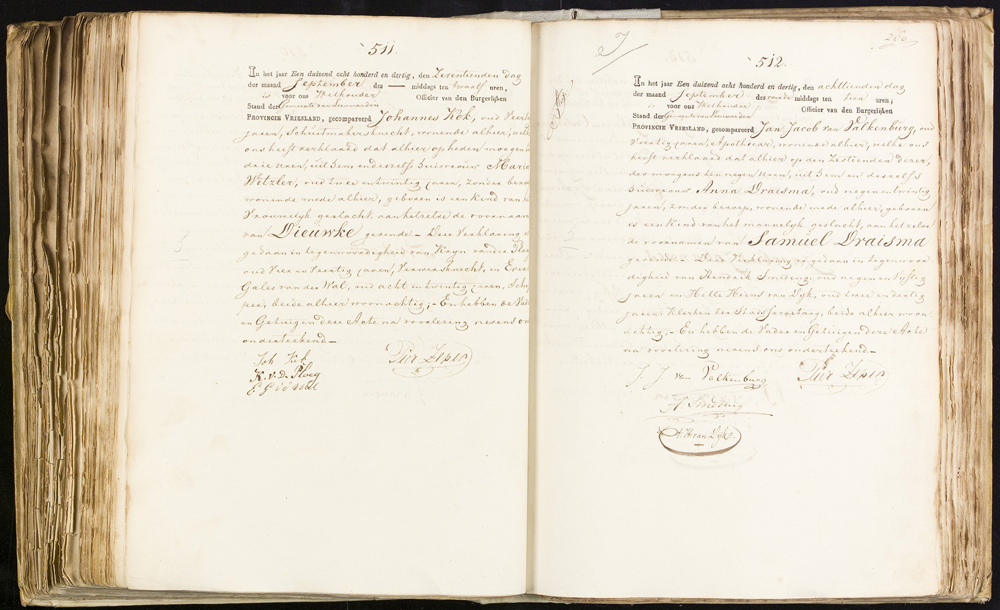 511.
In het jaar Een duizend acht honderd en dertig, den Zestienden dag
der maand September des — middags ten twaalf uren,
is voor ons Wethouder Officier van den Burgerlijken
Stand der Gemeente van Leeuwarden
PROVINCIE VRIESLAND, gecompareerd Johannes Kok, oud Veertig
jaren, Schuitmakersknecht, wonende alhier, welke
ons heeft verklaard dat alhier op heden morgen
drie uren, uit hem en deszelfs huisvrouw Marie
Witzler, oud twee en twintig jaren, zonder beroep
wonende mede alhier, geboren is een Kind van het
Vrouwelijk geslacht, aan hetwelk de voornaam
van Dieuwke gegeven is – Deze Verklaring is
gedaan in tegenwoordigheid van Kryn van der Ploeg
oud Vier en Veertig jaren, Verwersknecht, en Evert
Gales van der Wal, oud acht en twintig jaren,
beide alhier woonachtig; – En hebben de Vader
en Getuigen deze Acte na voorlezing nevens ons
onderteekend –
Joh Kok
K. v. d. Ploeg
E G v d Wal
Pier Zeper
260
512.
In het jaar Een duizend acht honderd en dertig, den achttienden dag
der maand September des middags ten tien uren;
is voor ons Wethouder Officier van den Burgerlijken
Stand der Gemeente van Leeuwarden
PROVINCIE VRIESLAND, gecompareerd Jan Jacob van Valkenburg, oud
Veertig jaren, Apothecar, wonende alhier, welke ons
heeft verklaard dat alhier op den Zestienden dezer,
des morgens ten negen uren, uit hem en deszelfs
huisvrouw Anna Draisma, oud negen en twintig
jaren, zonder beroep, wonende mede alhier, geboren
is een Kind van het mannelijk geslacht, aan hetwelk
de voornamen van Samuel Draisma
gegeven – Deze Verklaring is gedaan in tegenwoor
digheid van Hendrik Smeding, oud negen en Vijftig
jaren en Hette Heins van Dijk, oud twee en dertig
jaren Klerken ter Stads Secretary, beide alhier woon
achtig; – En hebben de Vader en Getuigen deze Acte
na voorlezing nevens ons onderteekend –
J. J. van Valkenburg
Pier Zeper
H. Smeding
H. H. van Dyk.